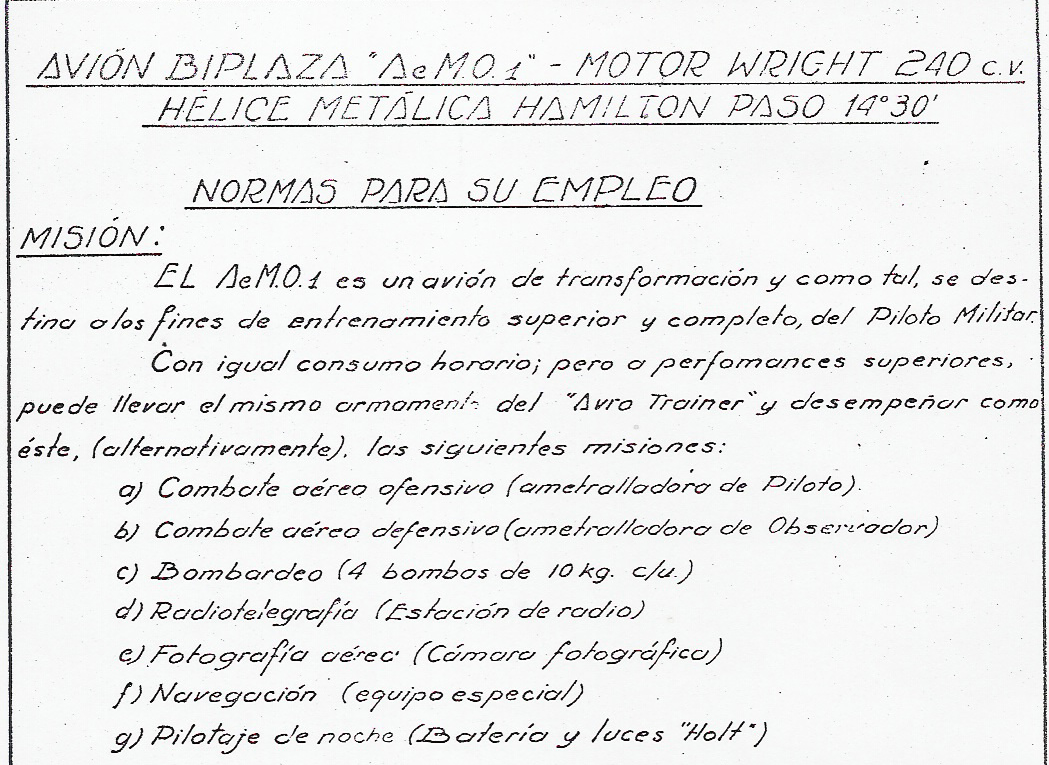 AVIÓN BIPLAZA "AeM.O.1" - MOTOR WRIGHT 240 c.v.
HÉLICE METÁLICA HAMILTON PASO 14°30'
NORMAS PARA SU EMPLEO
MISIÓN:
EL AeM.O.1 es un avión de transformación y como tal, se des-
tina a los fines de entrenamiento superior y completo, del Piloto Militar.
Con igual consumo horario; pero a perfomances superiores,
puede llevar el mismo armamento del "Avro Trainer" y desempeñar como
éste, (alternativamente), las siguientes misiones:
a) Combate aéreo ofensivo (ametralladora de Piloto).
b) Combate aéreo defensivo (ametralladora de Observador)
c) Bombardeo (4 bombas de 10 kg. c/u.)
d) Radiotelegrafía (Estación de radio)
e) Fotografía aérea (Cámara fotográfica)
f) Navegación (equipo especial)
g) Pilotaje de noche (Batería y luces "Holt")